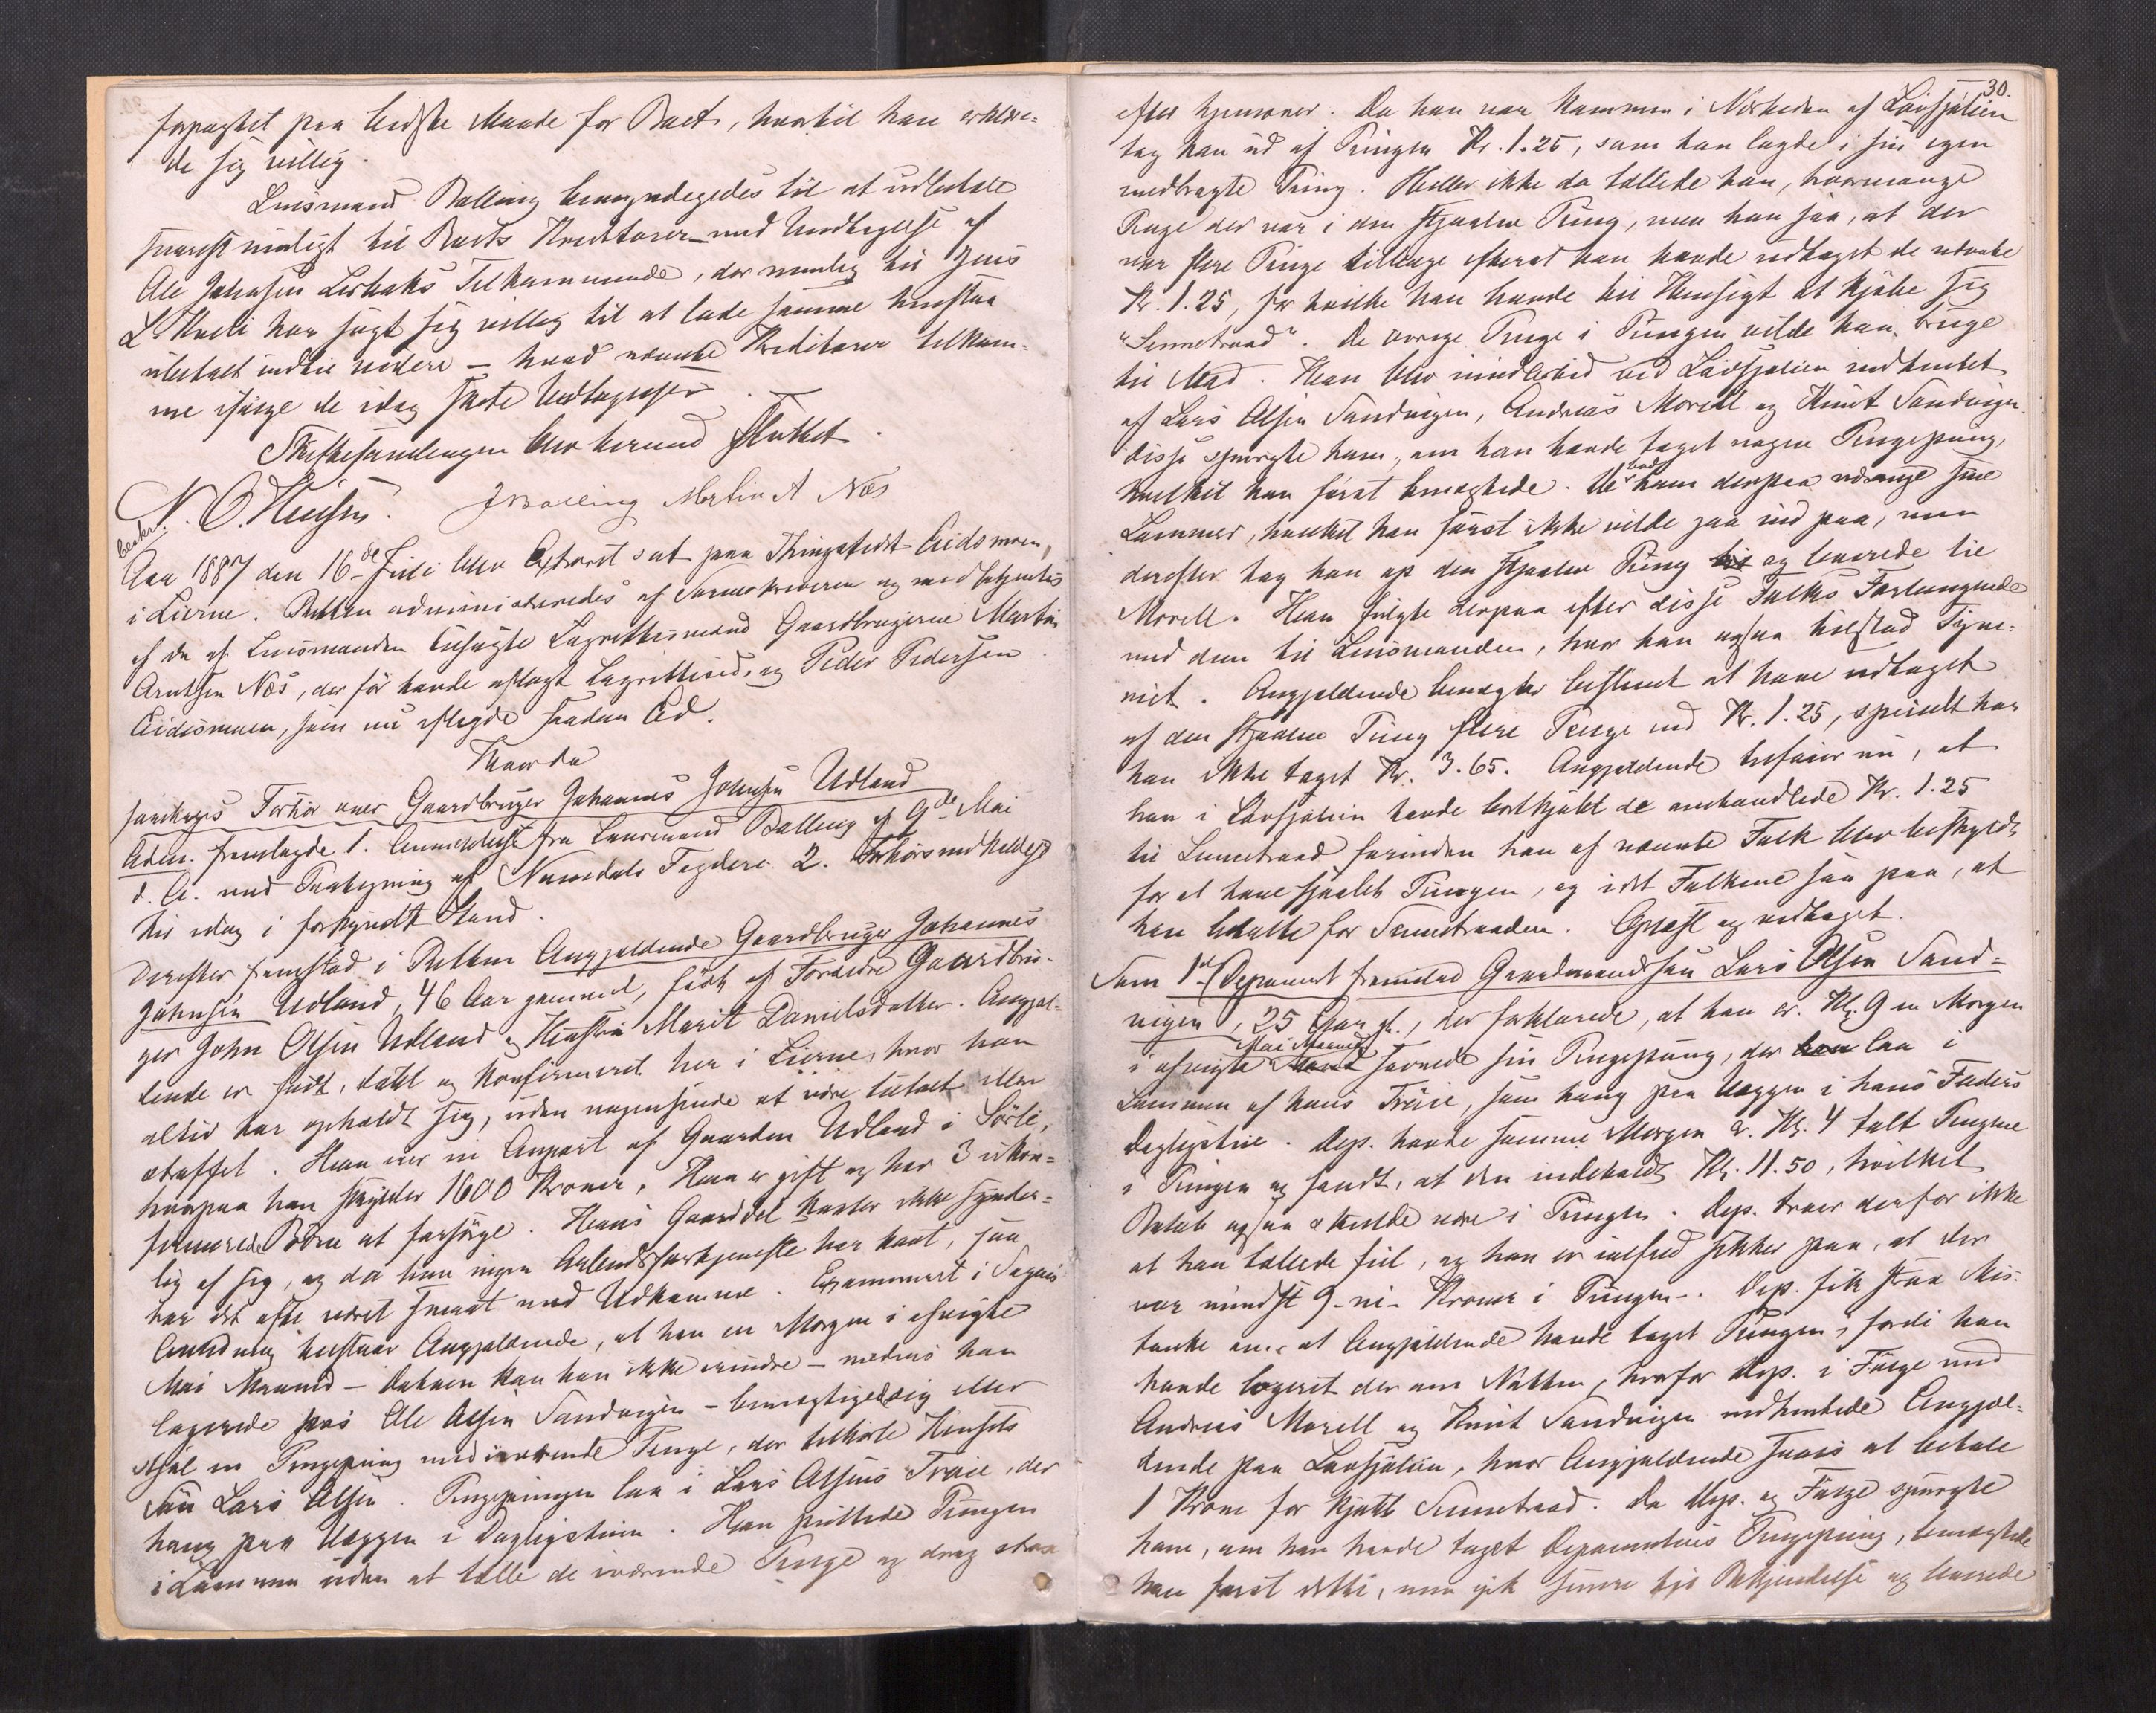 forpagtet paa bedste Maade for Boet, hvortil han erklære-
de sig villig.
Lensmand Balling bemyndigedes til at udbetale
snarest muligt til Boets Kreditorer med Undtagelse af
Ole Johnsen Lerbaks Tilkommende, der nemlig hos Jens
L. Kveli har sagt sig villig til at lade samme henstaa
ubetalt indtil videre – hvad nævnte Kreditorer tilkom-
me ifølge de idag skete Udlægg
Skiftesamlingen blev herved sluttet.
N. O. JBalling Martin A Næs
beskr.
Aar 1887 den 16de Juli blev Extraret sat paa Thingstedet Eidsmoen,
i Lierne. Retten administreredes af Sorenskriveren og medbetjentes
af de af Lensmanden tilsagte Lagrettesmænd Gaardbrugerne Martin
Arntsen Næs, der før havde aflagt Lagrettesed, og Peder Pedersen
Eidsmoen, som nu aflagde saadan Ed.
Hvorda
foretoges Forhør over Gaardbruger Johannes Johnsen Udland
Adm. fremlagde 1. Anmeldelse fra Lensmand Balling af 9de Mai
d. A. med Paategning af Namdals Fogderi. 2. Forhørsindkaldelse
til idag i forkyndt Stand.
Derefter fremstod i Retten Angjældende Gaardbruger Johannes
Johnsen Udland, 46 Aar gammel, født af Forældre Gaardbru-
ger John Olsen Udland og Hustru Marit Danielsdatter. Angjæl-
dende er født, døbt og konfirmeret her i Lierne, hvor han
altid har opholdt sig, uden nogensinde at være tiltalt eller
straffet. Han eier en Anpart af Gaarden Udland i Sørli,
hvorpaa han skylder 1600 Kroner. Han er gift og har 3 ukon-
firmerede Børn at forsørge. Hans Gaarddel kaster ikke synder-
lig af sig, og da han ingen Arbeidsfortjeneste har havt, saa
har det ofte været smaat med Udkomme. Examineret i Sagens
Anledning tilstaar Angjældende, at han en Morgen i afvigte
Mai Maaned – Datoen kan han ikke erindre – medens han
logerede hos Ole Olsen Sandvigen – bemægtigede sig eller
stjal en Pengepung med iværende Penge, der tilhørte Husets
Søn Lars Olsen. Pengepungen laa i Lars Olsens Trøie, der
hang paa Væggen i Dagligstuen. Han puttede Pungen
i Lommen uden at tælle de iværende Penge og drog strax
30.
efter hjemover. Da han var kommen i Nærheden af Løvsjølien
tog han ud af Pungen Kr. 1.25, som han lagde i sin egen
medbragte Pung. Heller ikke da tællede han, hvormange
Penge der var i den stjaalne Pung, men han saa, at der
var flere Penge tilbage efterat han havde udtaget de nævnte
Kr. 1.25, for hvilke han havde til Hensigt at kjøbe sig
"Sennetraad". De øvrige Penge i Pungen vilde han bruge
til Mad. Han blev imidlertid ved Løvsjølien indhentet
af Lars Olsen Sandvigen, Andreas Morell og Knut Sandvigen.
disse spurgte ham, om han havde taget nogen Pengepung,
hvilket han først benægtede. De bad ham derpaa udrange sine
Lommer, hvilket han først ikke vilde gaa ind paa, men
derefter tog han op den stjaalne Pung og leverede til
Morell. Han fulgte derpaa efter disse Folks Forlangende
med dem til Lensmanden, hvor han ogsaa tilstod Tyve-
riet. Angjældende benægter bestemt at have udtaget
af den stjaalne Pung flere Penge end Kr. 1.25, specielt har
han ikke taget Kr. 3.65. Angjældende tilføier nu, at
han i Løvsjølien havde bortkjøbt de omhandlede Kr. 1.25
til Sennetraad forinden han af nævnte Folk blev beskyldt
for at have stjaalet Pungen, og idet Folkene saa paa, at
han betalte for Sennetraaden. Oplæst og vedtaget.
Som 1ste Deponent fremstod Gaardmandssøn Lars Olsen Sand-
vigen, 25 Aar gl., der forklarede, at han ca. Kl. 9 en Morgen
i afvigte Mai Maaned savnede sin Pengepung, der laa i
Lommen af hans Trøie, som hang paa Væggen i hans Faders
Dagligstue. Dep. havde samme Morgen ca. Kl. 4 talt Pengene
i Pungen og fandt, at den indeholdt Kr. 11.50, hvilket
Beløb ogsaa skulde være i Pungen. Dep. troer derfor ikke
at han tællede feil, og han er ialfald sikker paa, at der
var mindst 9 – ni – Kroner i Pungen. Dep. fik strax Mis-
tanke om, at Angjældende havde taget Pungen, fordi han
havde logeret der om Natten, hvorfor Dep. i Følge med
Andreas Morell og Knut Sandvigen indhentede Angjæl-
dende paa Løvsjølien, hvor Angjældende saaes at betale
1 Krone for kjøbt Sennetraad. Da Dep. og Følge spurgte
ham, om han havde taget Deponentens Pengepung, benægtede
han først dette, men gik senere til Bekjendelse og leverede